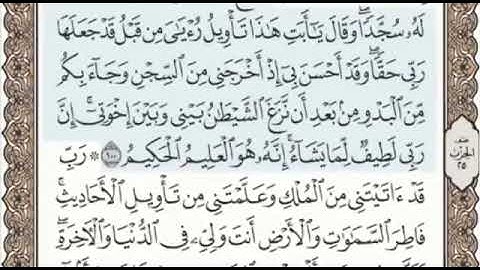 لَهُۥ سُجَّدًا ۖ وَقَالَ يَـٰٓأَبَتِ هَـٰذَا تَأْوِيلُ رُءْيَـٰىَ مِن قَبْلُ قَدْ جَعَلَهَا
رَبِّى حَقًّا ۖ وَقَدْ أَحْسَنَ بِىٓ إِذْ أَخْرَجَنِى مِنَ ٱلسِّجْنِ وَجَآءَ بِكُم
مِّنَ ٱلْبَدْوِ مِنۢ بَعْدِ أَن نَّزَغَ ٱلشَّيْطَـٰنُ بَيْنِى وَبَيْنَ إِخْوَتِىٓ ۚ إِنَّ
رَبِّى لَطِيفٌ لِّمَا يَشَآءُ ۚ إِنَّهُۥ هُوَ ٱلْعَلِيمُ ٱلْحَكِيمُ ١٠٠ ۞ رَبِّ
قَدْ ءَاتَيْتَنِى مِنَ ٱلْمُلْكِ وَعَلَّمْتَنِى مِن تَأْوِيلِ ٱلْأَحَادِيثِ ۚ
فَاطِرَ ٱلسَّمَـٰوَٰتِ وَٱلْأَرْضِ أَنتَ وَلِىِّۦ فِى ٱلدُّنْيَا وَٱلْـَٔاخِرَةِ ۖ
نصف
الحزب
٢٥